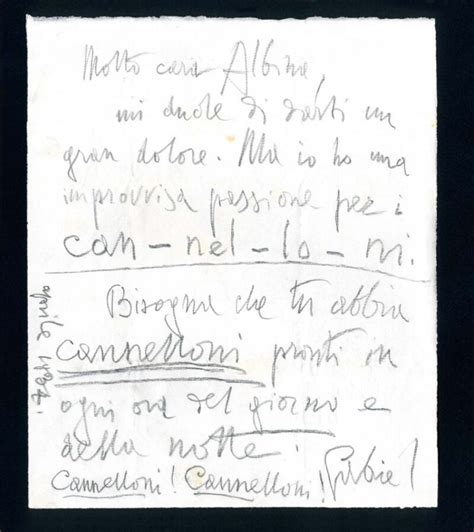 Molto cara Albina,
mi duole di darti un
gran dolore. Ma io ho una
improvvisa passione per i
can-nel-lo-ni.
Bisogna che tu abbia
cannelloni pronti in
ogni ora del giorno e
della notte.
Cannelloni! Cannelloni!
aprile